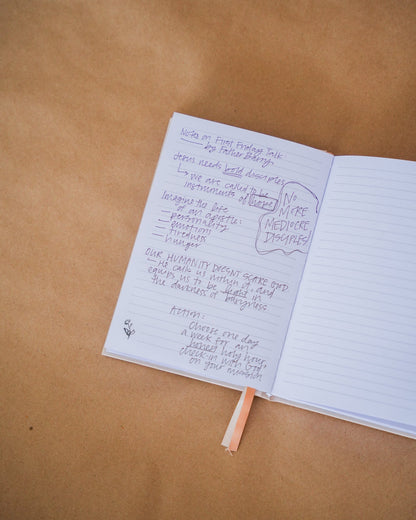 Notes on First Friday Talk
by Father Barry
Jesus needs bold disciples
↳ we are called to be
instruments of hope
NO
MORE
MEDIOCRE
DISCIPLES!
Imagine the life
of an apostle:
— personality
— emotions
— tiredness
— hunger
OUR HUMANITY DOESN'T SCARE GOD
— He calls us within it, and
equips us to be light in
the darkness of
ACTION:
Choose one day
a week for an
honest holy hour,
check-in with God
on your mission